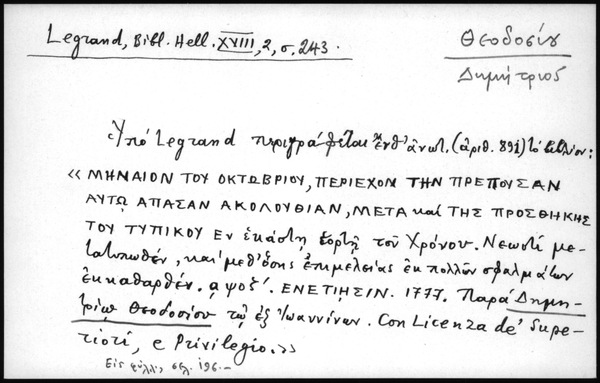 Legrand, Bibl. Hell. XVIII, 2, σ. 243.
Θεοδοσίου
Δημήτριος
Ὑπό Legrand περιγράφεται ἐνθ' ἀνωτ. (ἀριθ. 891) τό βιβλίον:
« ΜΗΝΑΙΟΝ ΤΟΥ ΟΚΤΩΒΡΙΟΥ, ΠΕΡΙΕΧΟΝ ΤΗΝ ΠΡΕΠΟΥΣΑΝ
ΑΥΤῼ ΑΠΑΣΑΝ ΑΚΟΛΟΥΘΙΑΝ, ΜΕΤΑ καί ΤΗΣ ΠΡΟΣΘΗΚΗΣ
ΤΟΥ ΤΥΠΙΚΟΥ Εν ἑκάστῃ ἑορτῇ τοῦ Χρόνου. Νεωστί με-
τατυπωθέν, καί μεθ' ὅσης ἐπιμελείας ἐκ πολλῶν σφαλμάτων
ἐκκαθαρθέν. αψοζ'. ΕΝΕΤΙΗΣΙΝ. 1777. Παρά Δημη-
τρίῳ Θεοδοσίου τῷ ἐξ Ἰωαννίνων. Con Licenza de' Supe-
riori, e Privilegio. »
Εἰς φύλλ', σελ. 196.-